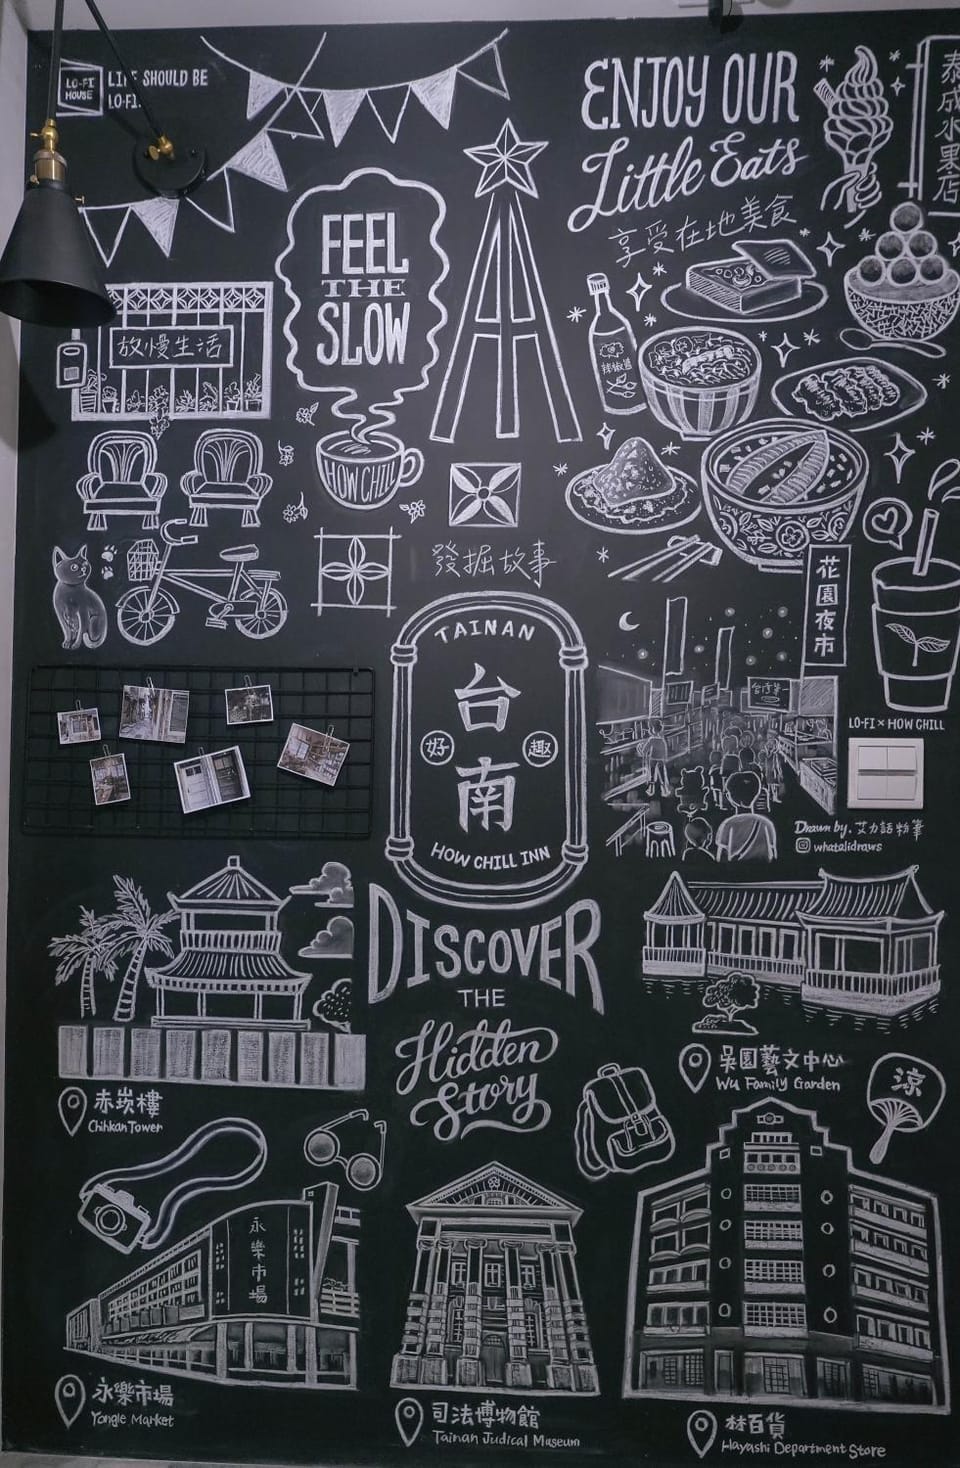 LO-FI
HOUSE
LIFE SHOULD BE
LO-FI.
ENJOY OUR
Little Eats
享受在地美食
泰成水果店
FEEL
THE
SLOW
放慢生活
HOW CHILL
辣椒醬
發掘故事
花園夜市
TAINAN
台
好 趣
南
HOW CHILL INN
LO-FI × HOW CHILL
Drawn by. 艾力話粉筆
whatalidraws
DISCOVER
THE
Hidden
Story
赤崁樓
Chihkan Tower
吳園藝文中心
Wu Family Garden
涼
永樂市場
永樂市場
Yongle Market
司法博物館
Tainan Judical Museum
林百貨
Hayashi Department Store